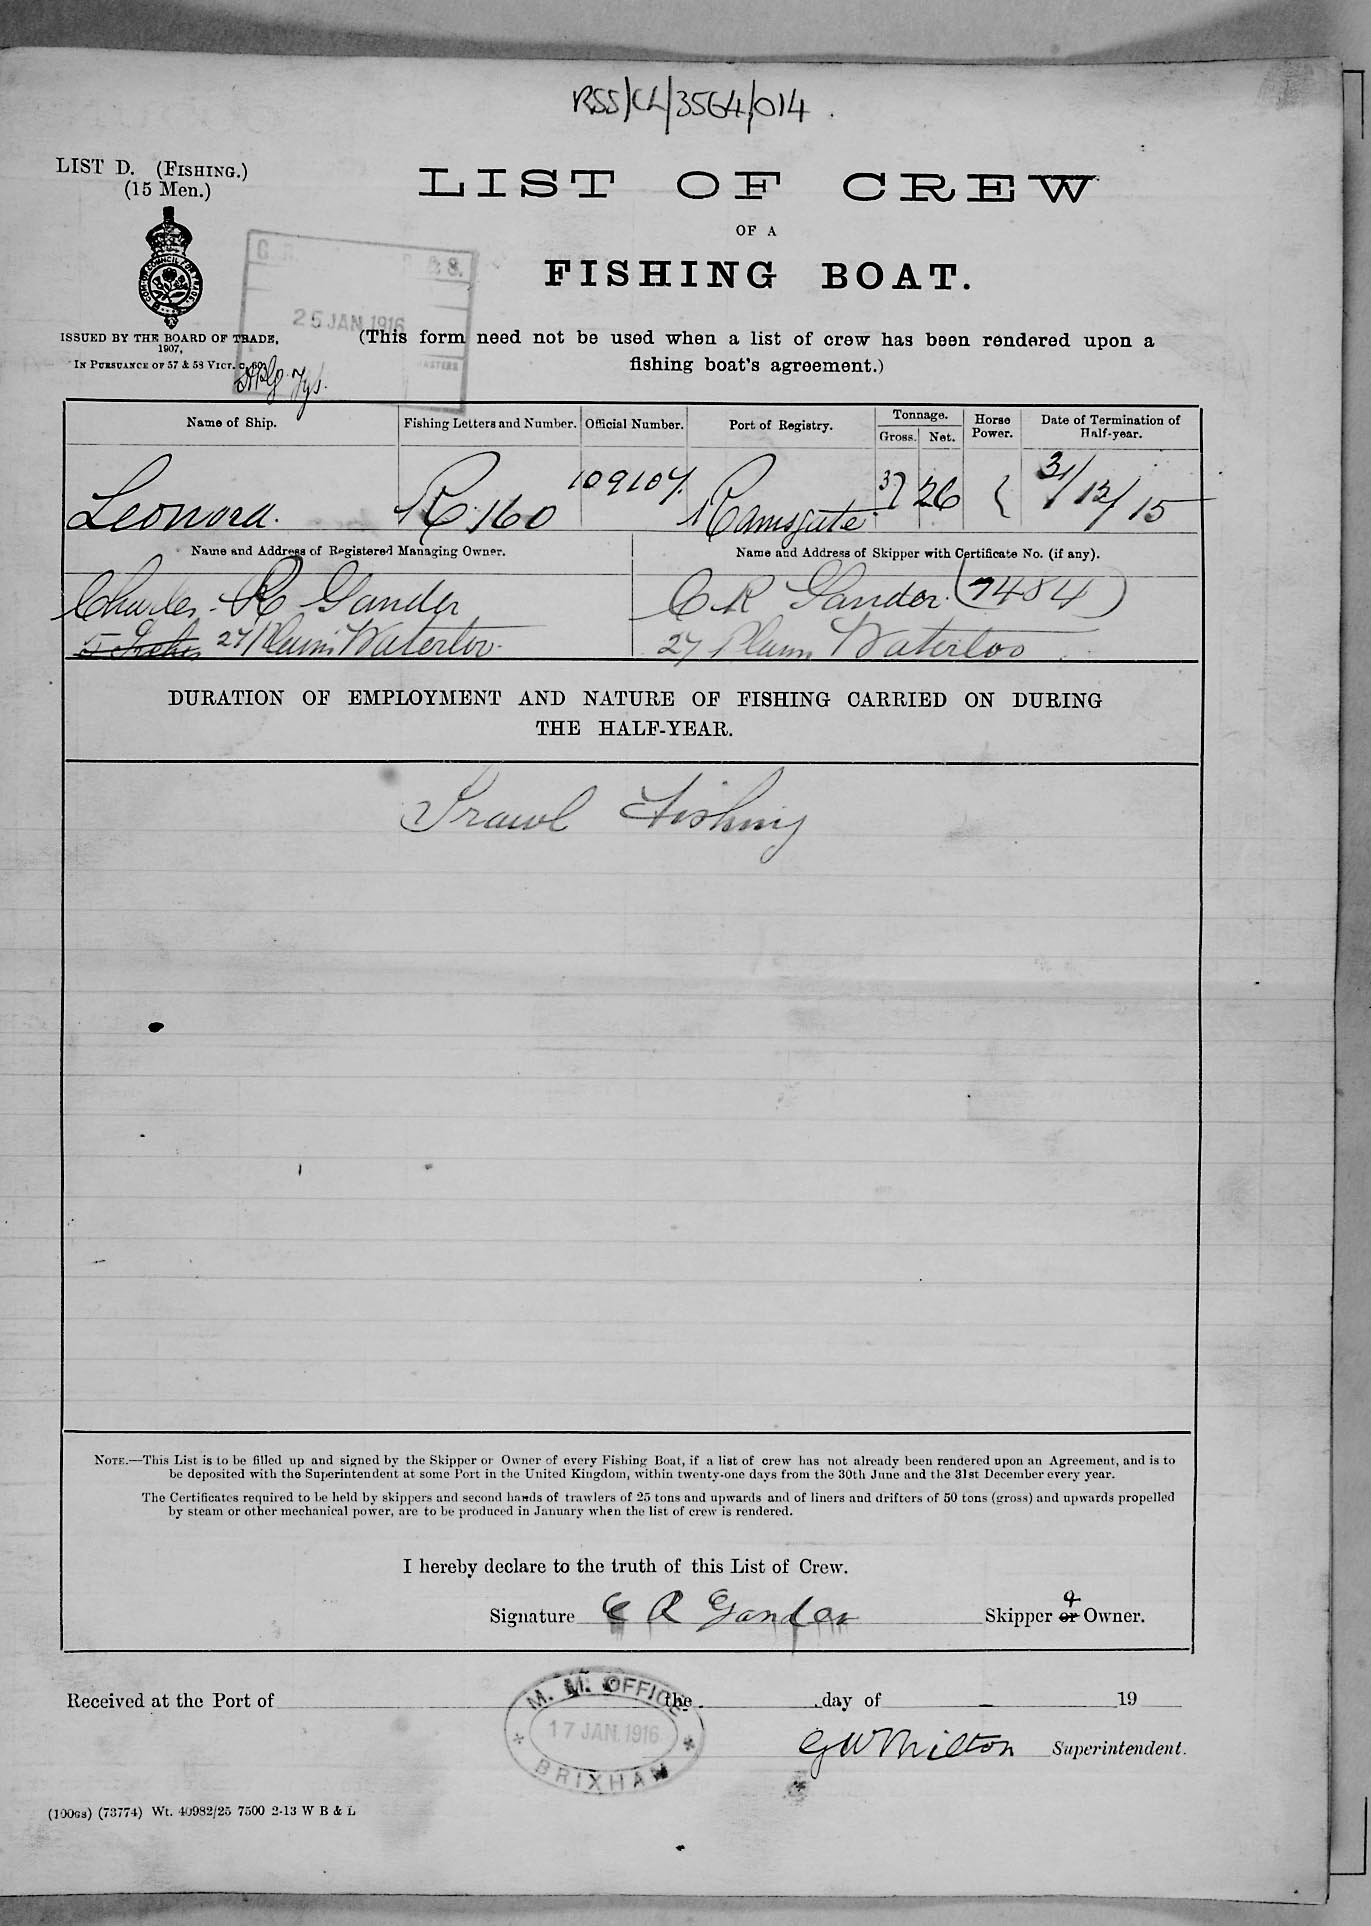 RSS/CL/3564/014
LIST D. (FISHING.)
(15 Men.)
LIST OF CREW
OF A
FISHING BOAT.
25 JAN 1916
ISSUED BY THE BOARD OF TRADE,
1907,
IN PURSUANCE OF 57 & 58 VICT. C. 60.
(This form need not be used when a list of crew has been rendered upon a
fishing boat's agreement.)
Name of Ship. Fishing Letters and Number. Official Number. Port of Registry. Tonnage. Gross. Net. Horse Power. Date of Termination of Half-year.
Leonora. R 160 109107. Ramsgate 37 26 31/12/15
Name and Address of Registered Managing Owner. Name and Address of Skipper with Certificate No. (if any).
Charles R Gander C R Gander (7484)
27 Plains Waterloo 27 Plains Waterloo
DURATION OF EMPLOYMENT AND NATURE OF FISHING CARRIED ON DURING
THE HALF-YEAR.
Trawl Fishing
NOTE.—This List is to be filled up and signed by the Skipper or Owner of every Fishing Boat, if a list of crew has not already been rendered upon an Agreement, and is to
be deposited with the Superintendent at some Port in the United Kingdom, within twenty-one days from the 30th June and the 31st December every year.
The Certificates required to be held by skippers and second hands of trawlers of 25 tons and upwards and of liners and drifters of 50 tons (gross) and upwards propelled
by steam or other mechanical power, are to be produced in January when the list of crew is rendered.
I hereby declare to the truth of this List of Crew.
Signature C R Gander Skipper or & Owner.
Received at the Port of the day of 19
M. M. OFFICE
17 JAN. 1916
BRIXHAM
G W Milton Superintendent.
(100GS) (73774) Wt. 40982/25 7500 2-13 W B & L